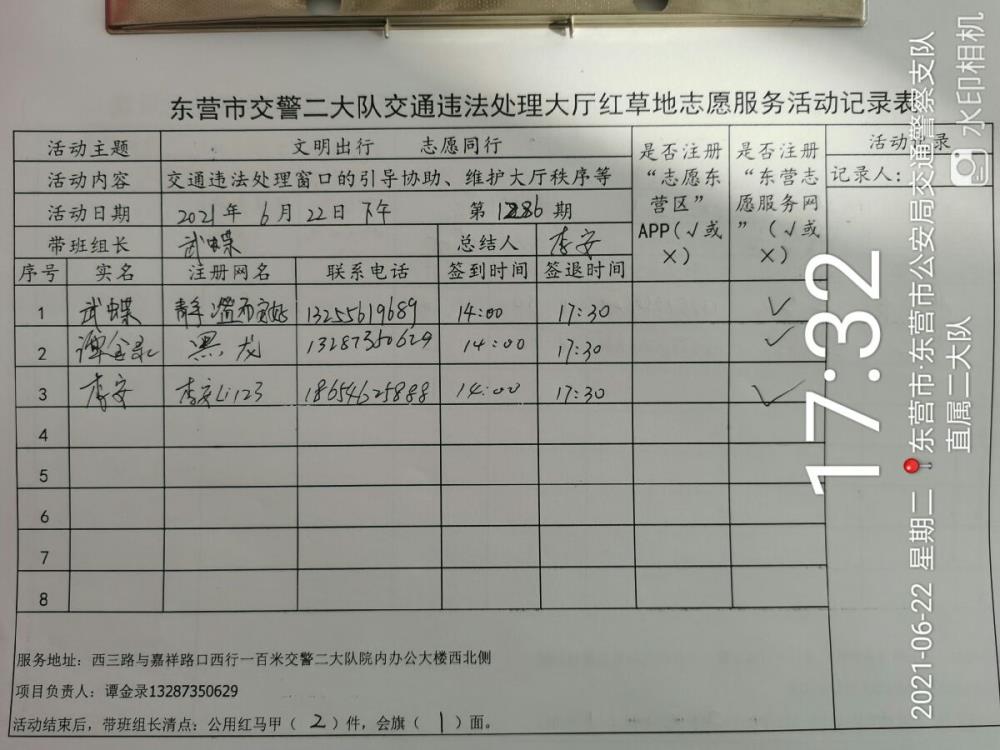 东营市交警二大队交通违法处理大厅红草地志愿服务活动记录表
活动主题 文明出行 志愿同行
活动内容 交通违法处理窗口的引导协助、维护大厅秩序等
活动日期 2021年 6月 22日 下午 第1286期
带班组长 武蝶 总结人 李安
是否注册“志愿东营区”APP(√或×)
是否注册“东营志愿服务网”(√或×)
活动记录
记录人:
序号 实名 注册网名 联系电话 签到时间 签退时间
1 武蝶 13255619689 14:00 17:30 √
2 谭金录 黑龙 13287350629 14:00 17:30 √
3 李安 李安Li123 18654625888 14:00 17:30 √
4
5
6
7
8
服务地址：西三路与嘉祥路口西行一百米交警二大队院内办公大楼西北侧
项目负责人：谭金录13287350629
活动结束后，带班组长清点：公用红马甲（ 2 ）件，会旗（ 1 ）面。
17:32
2021-06-22 星期二 东营市·东营市公安局交通警察支队
直属二大队
水印相机